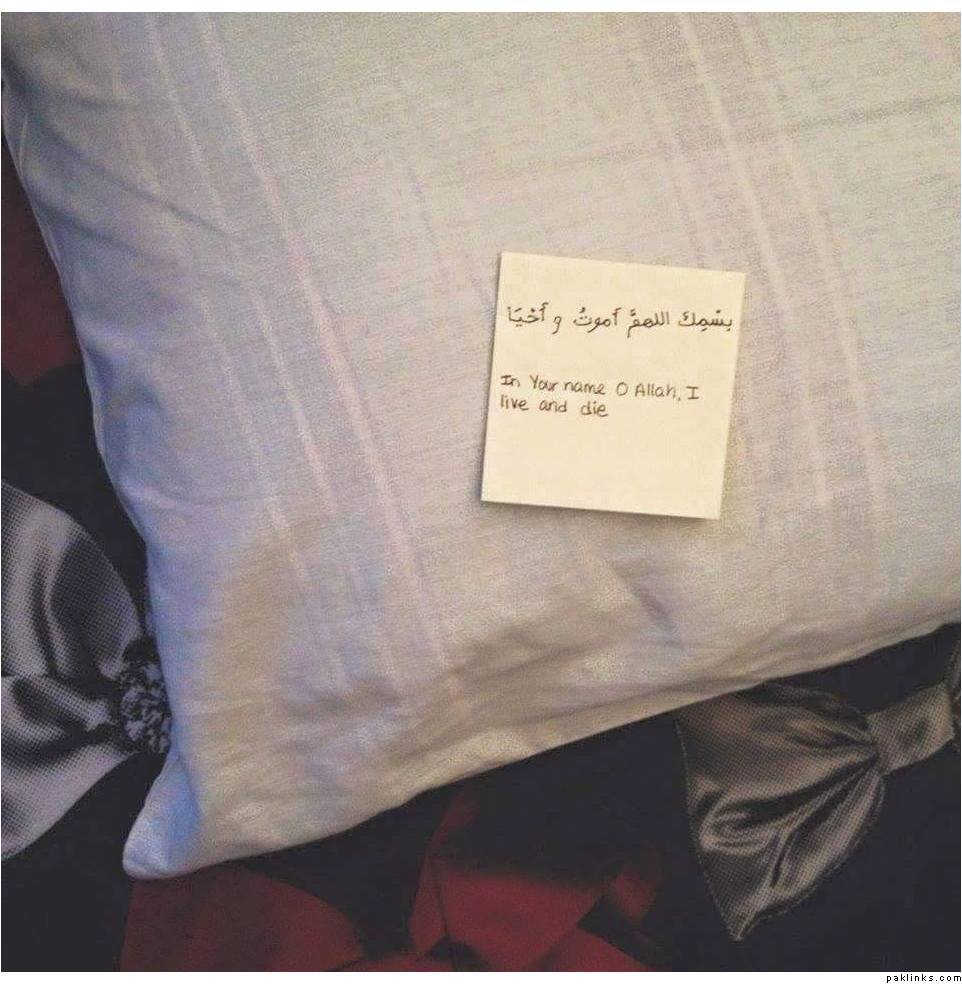 بسْمِكَ اللهمَّ أَموتُ و أَحْيَا
In Your name O Allah, I
live and die
paklinks.com